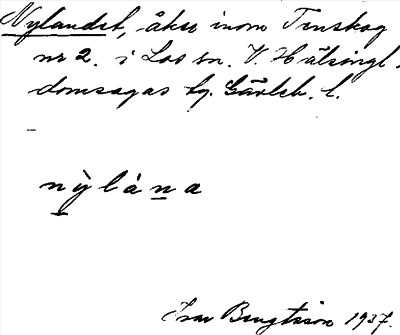 Nylandet, åker inom Tenskog
nr 2. i Los sn. V. Hälsingl.
domsagas tg. Gävleb. l.
–
nỳlàna
Ivar Bengtsson 1937.